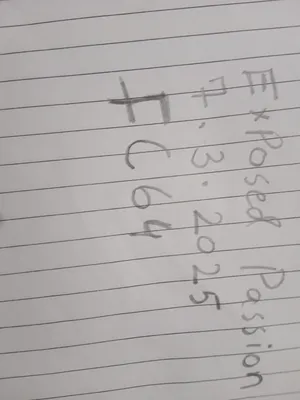 ExPosed Passion
7.3.2025
FC64